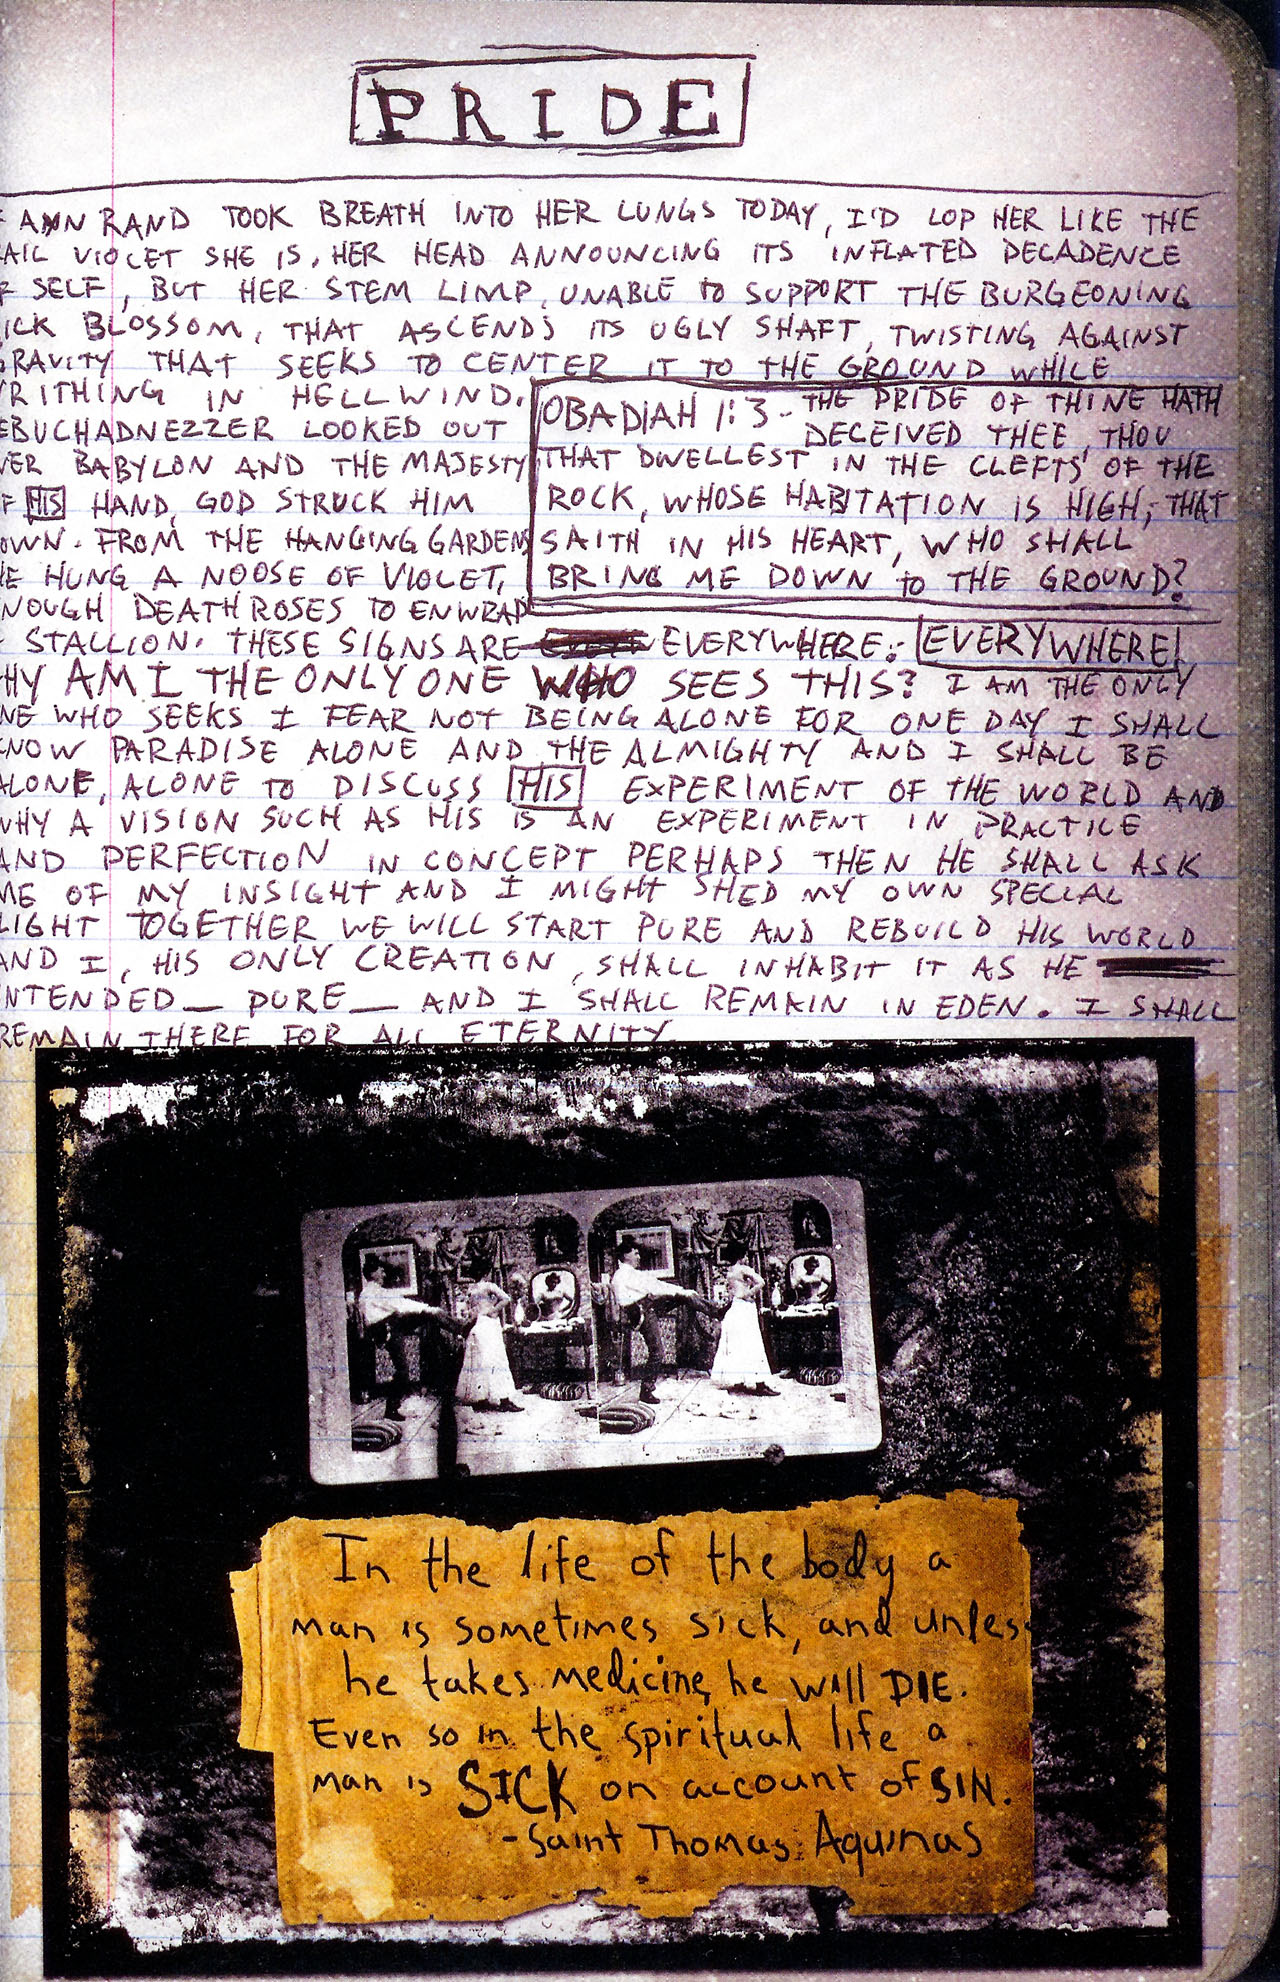 PRIDE
AYN RAND TOOK BREATH INTO HER LUNGS TODAY, I'D LOP HER LIKE THE
AIL VIOLET SHE IS, HER HEAD ANNOUNCING ITS INFLATED DECADENCE
F SELF, BUT HER STEM LIMP, UNABLE TO SUPPORT THE BURGEONING
ICK BLOSSOM, THAT ASCENDS ITS UGLY SHAFT, TWISTING AGAINST
GRAVITY THAT SEEKS TO CENTER IT TO THE GROUND WHILE
RITHING IN HELLWIND.
EBUCHADNEZZER LOOKED OUT
VER BABYLON AND THE MAJESTY
F HIS HAND, GOD STRUCK HIM
OWN. FROM THE HANGING GARDENS
HE HUNG A NOOSE OF VIOLET,
NOUGH DEATH ROSES TO ENWRAP
STALLION. THESE SIGNS ARE EVERYWHERE. EVERYWHERE!
HY AM I THE ONLY ONE WHO SEES THIS? I AM THE ONLY
NE WHO SEEKS I FEAR NOT BEING ALONE FOR ONE DAY I SHALL
KNOW PARADISE ALONE AND THE ALMIGHTY AND I SHALL BE
ALONE, ALONE TO DISCUSS HIS EXPERIMENT OF THE WORLD AND
WHY A VISION SUCH AS HIS IS AN EXPERIMENT IN PRACTICE
AND PERFECTION IN CONCEPT PERHAPS THEN HE SHALL ASK
ME OF MY INSIGHT AND I MIGHT SHED MY OWN SPECIAL
LIGHT TOGETHER WE WILL START PURE AND REBUILD HIS WORLD
AND I, HIS ONLY CREATION, SHALL INHABIT IT AS HE
NTENDED_ PURE_ AND I SHALL REMAIN IN EDEN. I SHALL
REMAIN THERE FOR ALL ETERNITY.
OBADIAH 1:3 - THE PRIDE OF THINE HATH
DECEIVED THEE, THOU
THAT DWELLEST IN THE CLEFTS OF THE
ROCK, WHOSE HABITATION IS HIGH; THAT
SAITH IN HIS HEART, WHO SHALL
BRING ME DOWN to THE GROUND?
In the life of the body a
man is sometimes sick, and unles
he takes medicine, he will DIE.
Even so in the spiritual life a
man is SICK on account of SIN.
-Saint Thomas Aquinas